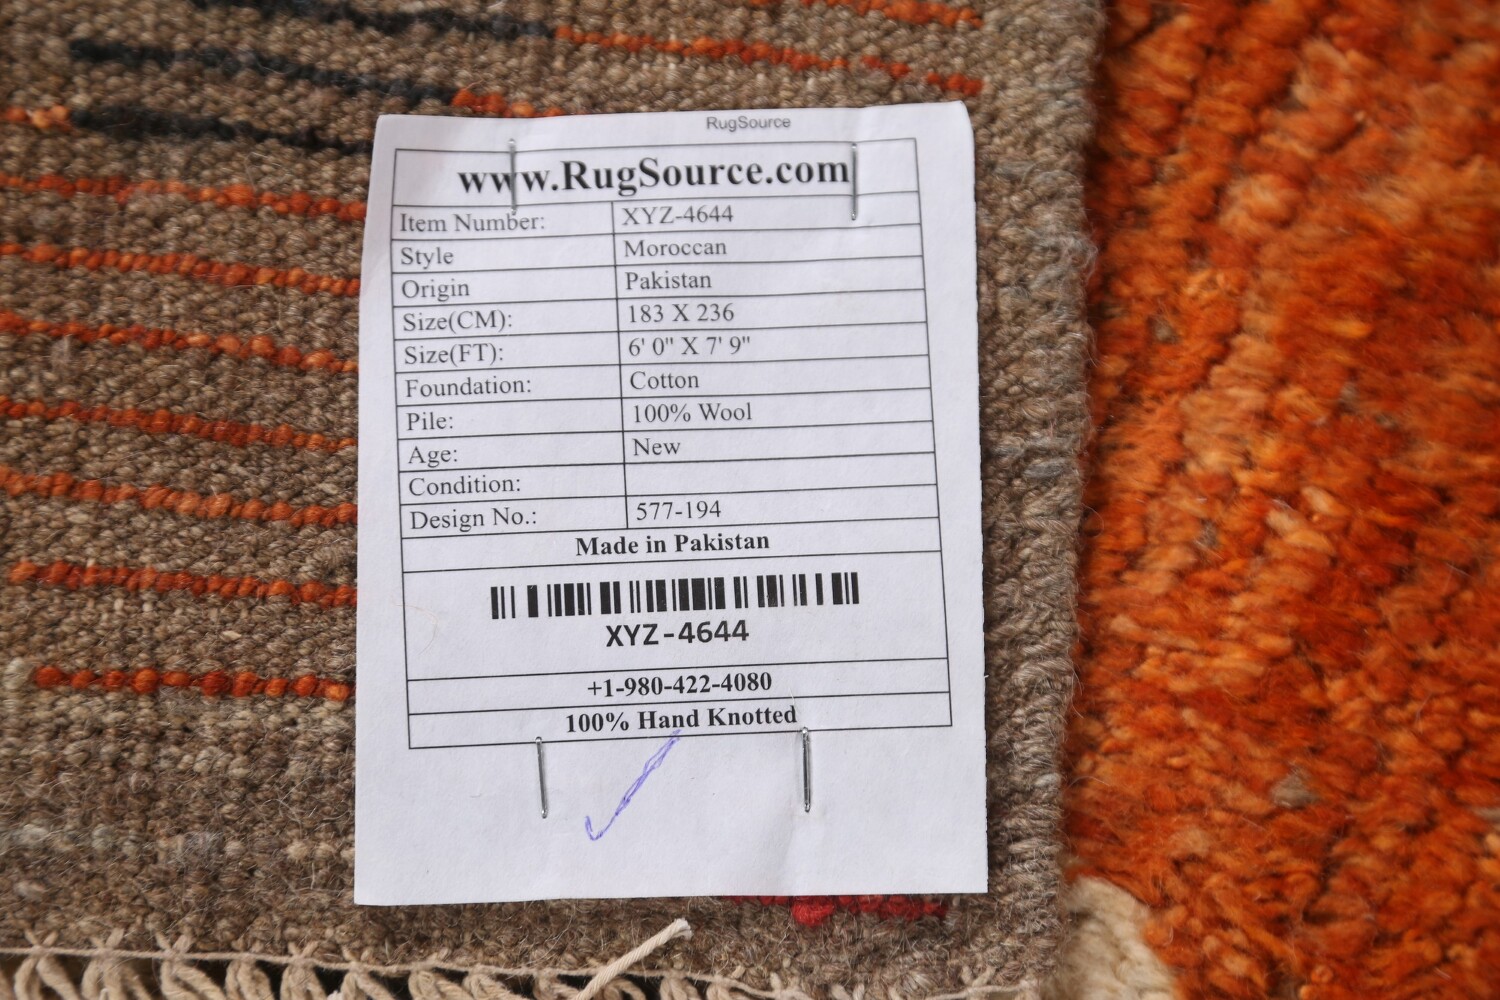 RugSource
www.RugSource.com
Item Number: XYZ-4644
Style Moroccan
Origin Pakistan
Size(CM): 183 X 236
Size(FT): 6' 0" X 7' 9"
Foundation: Cotton
Pile: 100% Wool
Age: New
Condition:
Design No.: 577-194
Made in Pakistan
XYZ-4644
+1-980-422-4080
100% Hand Knotted